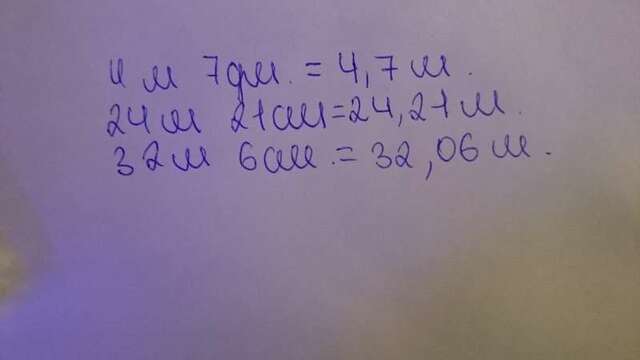 4 м 7 дм. = 4,7 м
24 м 21 см = 24,21 м.
32 м 6 см. = 32,06 м.